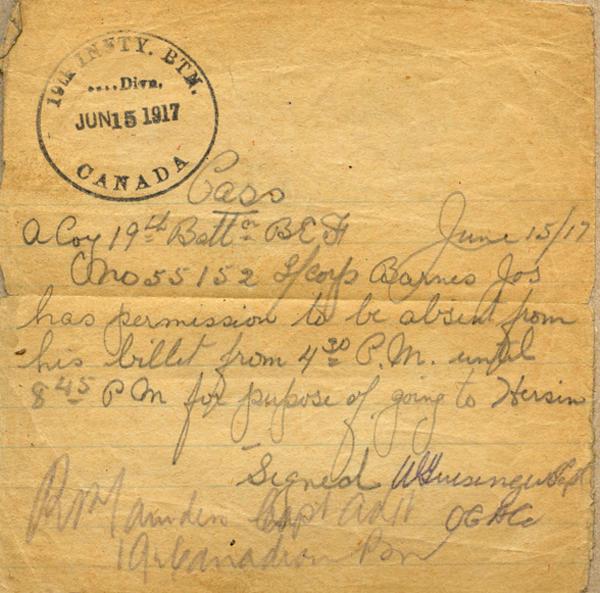 19th INFTY. BTN.
....Divn.
JUN 15 1917
CANADA
Pass
A Coy 19th Battn BEF June 15/17
No 55152 L/Corp Barnes Jos
has permission to be absent from
his billet from 4 30 P.M. until
8 45 P M for pupose of going to Hersin
Signed Capt
Capt Adjt OC A Co
19th Canadian Bn